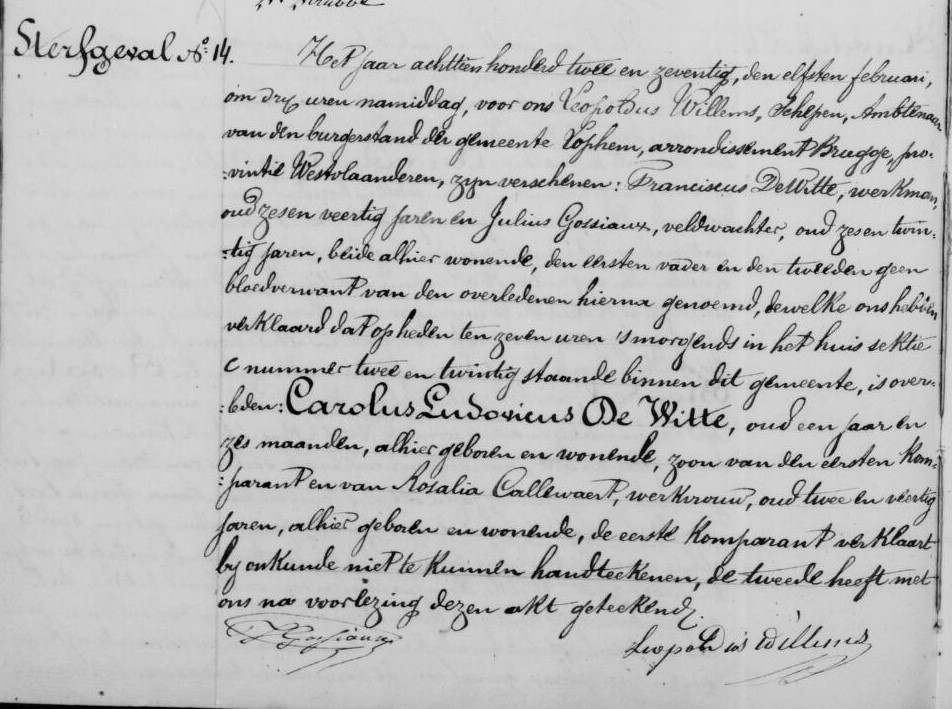 Sterfgeval No 14.
Het jaar achttien honderd twee en zeventig, den elfsten februari,
om dry uren namiddag, voor ons Leopoldus Willems, Schepen, Ambtenaar
van den burgerstand der gemeente Lophem, arrondissement Brugge, pro-
:vintie Westvlaanderen, zyn verschenen: Franciscus DeWitte, werkman,
oud zes en veertig jaren en Julius Gossiaux, veldwachter, oud zes en twin-
:tig jaren, beide alhier wonende, den eersten vader en den tweeden geen
bloedverwant van den overledenen hierna genoemd, dewelke ons hebben
verklaard dat op heden ten zeven uren 's morgends in het huis sektie
C nummer twee en twintig staande binnen dit gemeente, is over-
:leden: Carolus Ludovicus De Witte, oud een jaar en
zes maanden, alhier geboren en wonende, zoon van den eersten Kom-
:parant en van Rosalia Callewaert, werkvrouw, oud twee en veertig
jaren, alhier geboren en wonende, de eerste Komparant verklaart
by onkunde niet te kunnen handteekenen, de tweede heeft met
ons na voorlezing dezen akt geteekend.
J Gossiaux
Leopoldus Willems